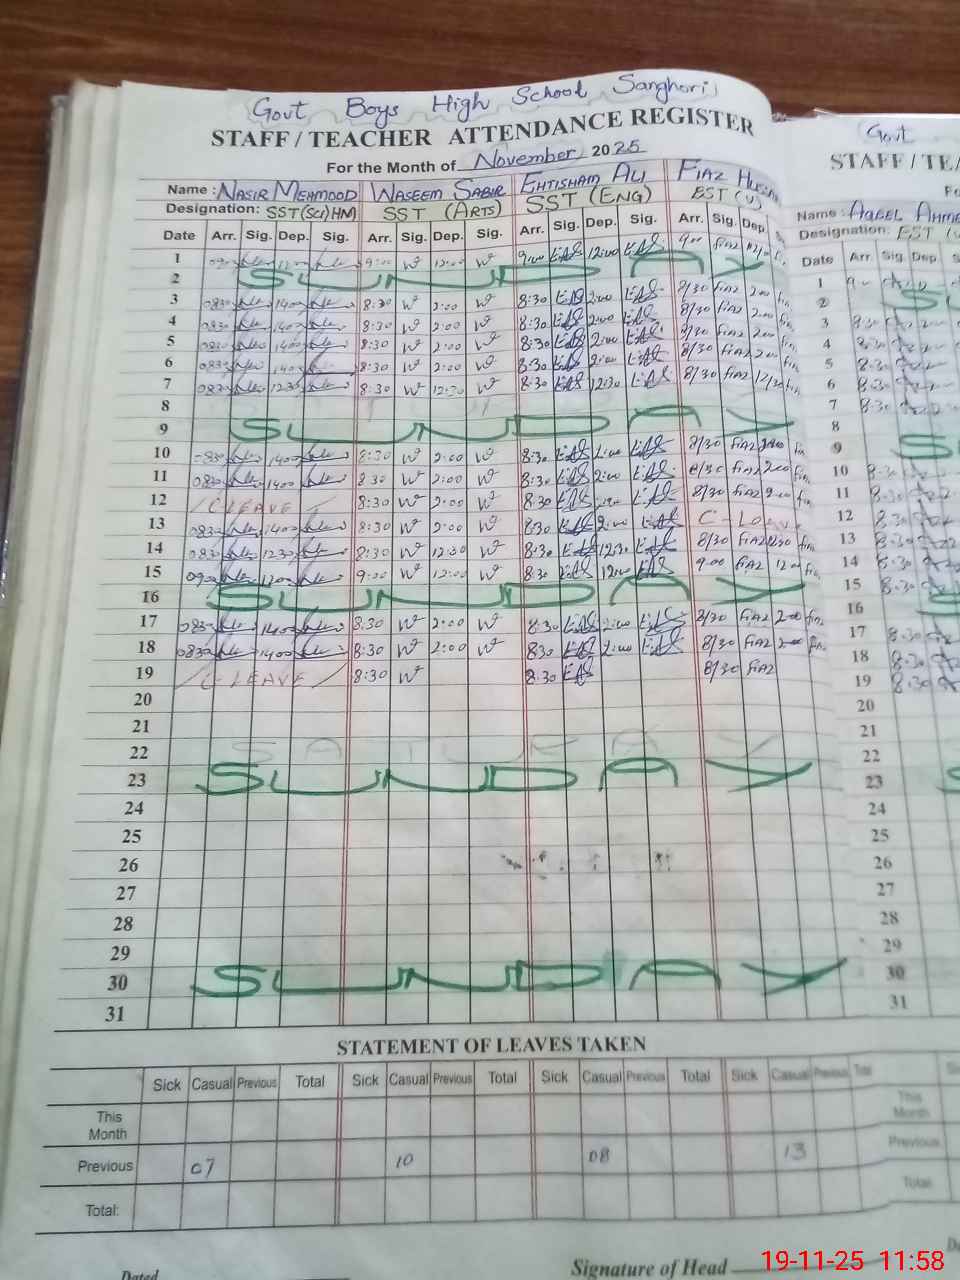 Govt Boys High School Sanghori
STAFF / TEACHER ATTENDANCE REGISTER
For the Month of November 2025
Name : NASIR MEHMOOD WASEEM SABIR EHTISHAM ALI FIAZ
Designation: SST(SCI)HM SST (ARTS) SST (ENG) EST(V)
Date Arr. Sig. Dep. Sig. Arr. Sig. Dep. Sig. Arr. Sig. Dep. Sig. Arr. Sig. Dep.
1 9:00 W 12:00 W 9:00 EAS 12:00 EAS 9:00 FIAZ
2 SUNDAY
3 0830 1400 8:30 W 2:00 W 8:30 EAS 2:00 EAS 8/30 FIAZ 200
4 0830 1400 8:30 W 2:00 W 8:30 EAS 2:00 EAS 8/30 FIAZ 200
5 0830 1400 8:30 W 2:00 W 8:30 EAS 2:00 EAS 8/30 FIAZ 200
6 0830 1400 8:30 W 2:00 W 8:30 EAS 2:00 EAS 8/30 FIAZ 200
7 0830 1230 8:30 W 12:30 W 8:30 EAS 12:30 EAS 8/30 FIAZ 12/30
8
9 SUNDAY
10 0830 1400 8:30 W 2:00 W 8:30 EAS 2:00 EAS 8/30 FIAZ 200
11 0830 1400 8:30 W 2:00 W 8:30 EAS 2:00 EAS 8/30 FIAZ 200
12 C LEAVE 8:30 W 2:00 W 8:30 EAS EAS 8/30 FIAZ 200
13 0830 1400 8:30 W 2:00 W 8:30 EAS 2:00 EAS C - Leave
14 0830 1230 8:30 W 12:30 W 8:30 EAS 12:30 EAS 8/30 FIAZ
15 0900 1200 9:00 W 12:00 W 8:30 EAS 12:00 EAS 9:00 FIAZ 12:00
16 SUNDAY
17 0830 1400 8:30 W 2:00 W 8:30 EAS 2:00 EAS 8/30 FIAZ 200
18 0830 1400 8:30 W 2:00 W 8:30 EAS 2:00 EAS 8/30 FIAZ 200
19 C-LEAVE 8:30 W 8:30 EAS 8/30 FIAZ
20
21
22 SATURDAY
23 SUNDAY
24
25
26
27
28
29
30 SUNDAY
31
STATEMENT OF LEAVES TAKEN
Sick Casual Previous Total Sick Casual Previous Total Sick Casual Previous Total Sick Casual Previous Total
This Month
Previous 07 10 08 13
Total:
Dated
Signature of Head
Govt
STAFF / TEA
Name : AQEEL AHME
Designation: EST
Date Arr. Sig. Dep.
1
2
3 8:30
4 8:30
5 8:30
6 8:30
7 8:30
8
9
10 8:30
11 8:30
12 8:30
13 8:30
14 8:30
15 8:30
16
17 8:30
18 8:30
19 8:30
20
21
22
23
24
25
26
27
28
29
30
31
This Month
Previous
Total:
19-11-25 11:58